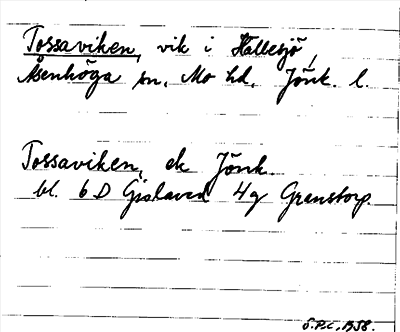 Tossaviken, vik i Hallesjö,
Åsenhöga sn. Mo hd. Jönk. l.
Tossaviken, ek Jönk.
bl. 6 D Gislaved 4g Granstorp.
S.P.C. 1958.